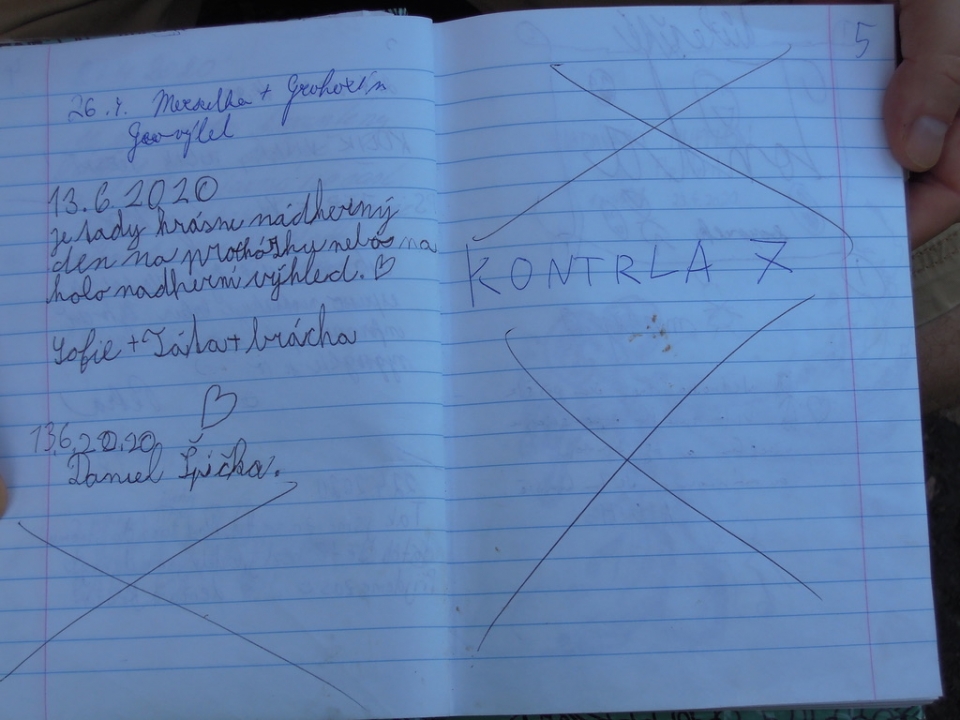 26.4. + Grohovín
Geovýlet
13.6.2020
je tady krásne nádherný
den na procházky nebo na
kolo nadherní výhled. ♡
Sofie + Táta + brácha
♡
13.6.2020
Daniel Špička.
5
KONTRLA 7